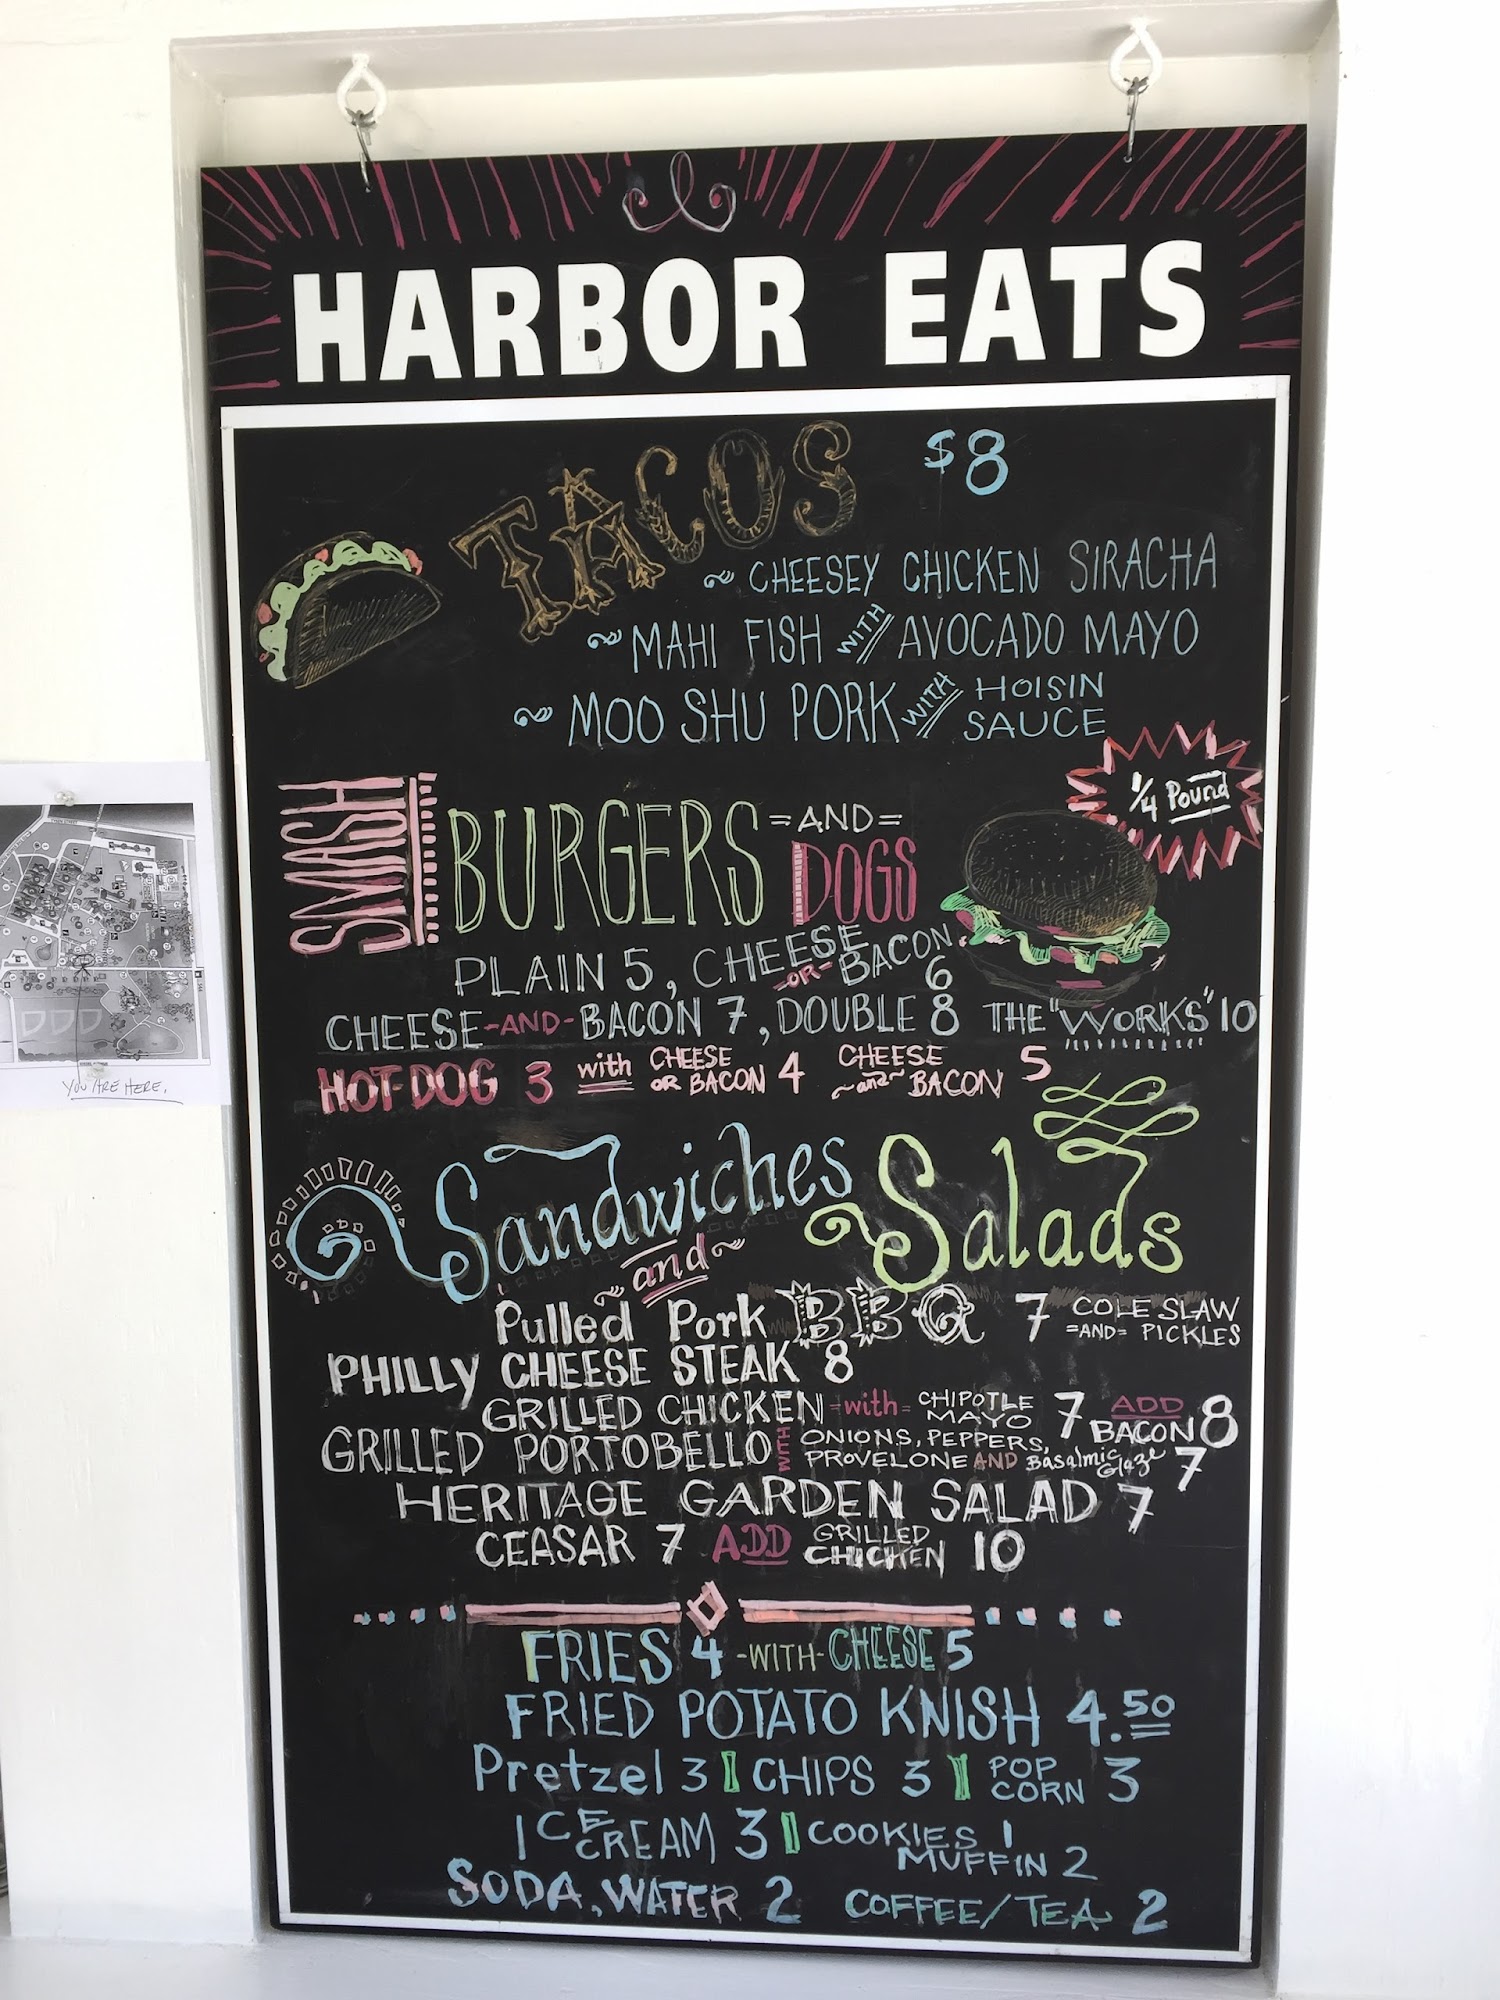 HARBOR EATS
TACOS $8
CHEESEY CHICKEN SIRACHA
MAHI FISH WITH AVOCADO MAYO
MOO SHU PORK WITH HOISIN SAUCE
1/4 Pound
SMASH BURGERS =AND= DOGS
PLAIN 5, CHEESE -OR- BACON 6
CHEESE -AND- BACON 7, DOUBLE 8 THE "WORKS" 10
HOT-DOG 3 with CHEESE OR BACON 4 CHEESE ~and~ BACON 5
Sandwiches and Salads
Pulled Pork BBQ 7 COLE SLAW =AND= PICKLES
PHILLY CHEESE STEAK 8
GRILLED CHICKEN =with= CHIPOTLE MAYO 7 ADD BACON 8
GRILLED PORTOBELLO WITH ONIONS, PEPPERS, PROVELONE AND Basalmic Glaze 7
HERITAGE GARDEN SALAD 7
CEASAR 7 ADD GRILLED CHICKEN 10
FRIES 4 -WITH- CHEESE 5
FRIED POTATO KNISH 4.50
Pretzel 3 CHIPS 3 POP CORN 3
ICE CREAM 3 COOKIES 1
MUFFIN 2
SODA, WATER 2 COFFEE/TEA 2
YOU ARE HERE.